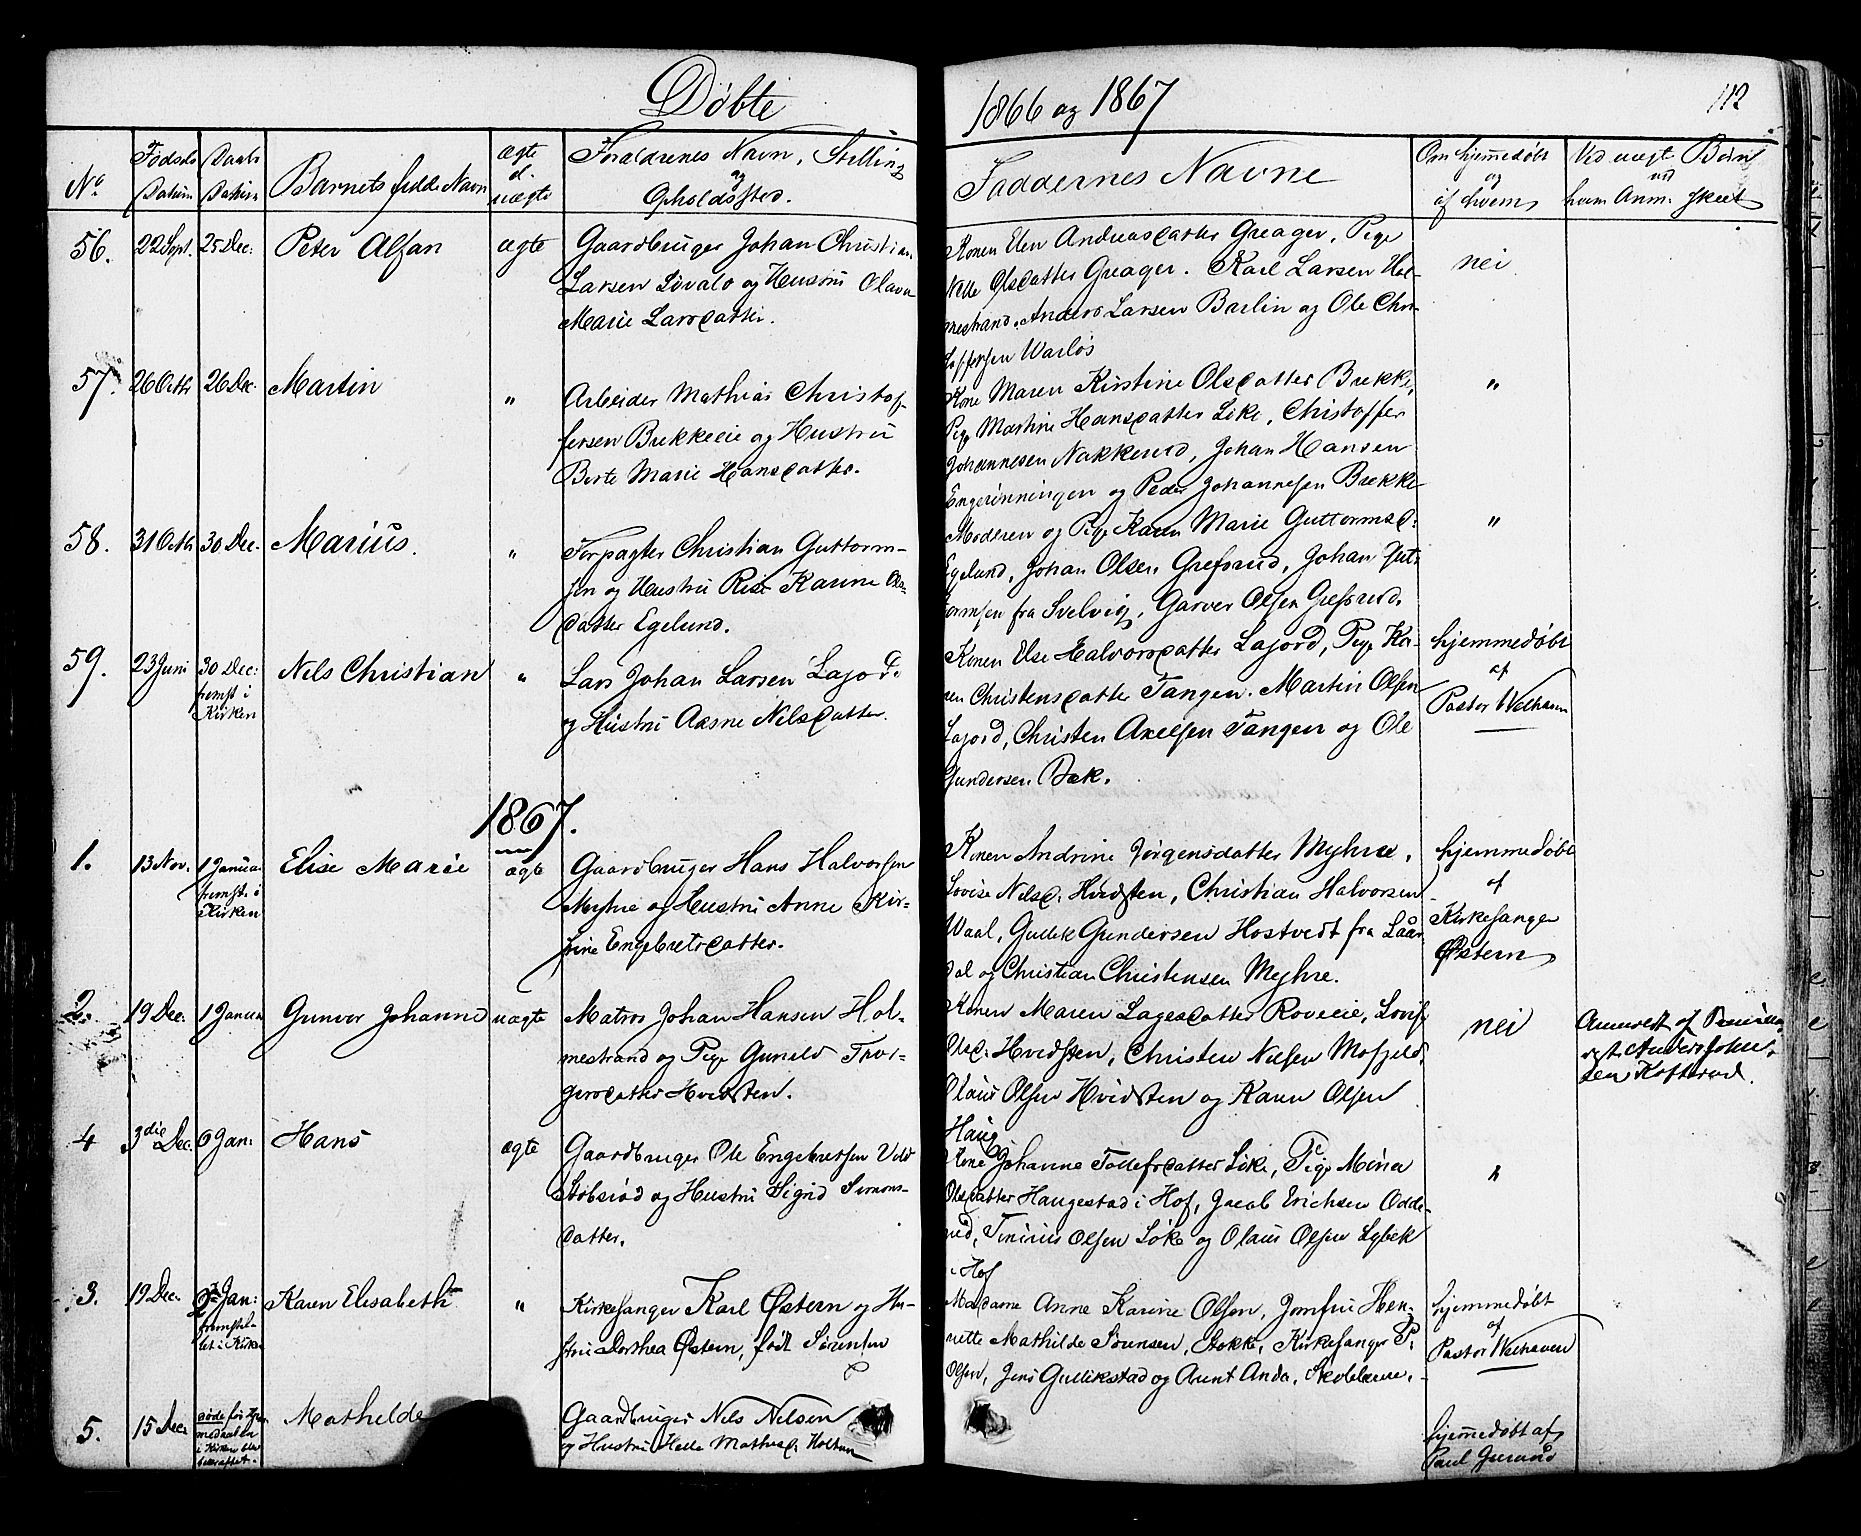 Døbte
1866 og 1867
112
No
Fødsels Datum
Daabs Datum
Barnets fulde Navn
ægte
el.
uægte
Forældrenes Navn, Stilling
og
Opholdssted.
Faddernes Navne
Om hjemmedøbt
og
af hvem
Ved uægt Børn
ved
hvem Anm. skeet
56. 22 Sept. 25 Dec: Peter Alfan ægte
Gaardbruger Johan Christian
Larsen Løvald og Hustru Olava
Marie Larsdatter.
Konen Elen Andreasdatter Greager, Pige
Nelle Olsdatter Greager. Karl Larsen Hol-
mestrand. Anders Larsen Berlin og Ole Chri-
stoffersen Warlos
nei
57. 26 Octbr 26 Dec. Martin "
Arbeider Mathias Christof-
fersen Brekkeeie og Hustru
Berte Marie Hansdatter.
Kone Maren Kirstine Olsdatter Brekke,
Pige Martine Hansdatter Løke, Christoffer
Johannesen Nakkerud, Johan Hansen
og Peder Johannesen Brekke
"
58. 31 Octbr 30 Dec. Marius. "
Forpagter Christian Guttorm-
sen og Hustru Rise Karine Ols-
datter Egelund.
Moderen og Pige Karen Marie Guttormsd.
Egelund, Johan Olsen Grefsrud, Johan Gut-
tormsen fra Svelvig, Garver Olsen Grefsrud.
"
59. 23 Juni 30 Dec: fremst i Kirken Nils Christian "
Lars Johan Larsen Lajord.
og Hustru Aasne Nilsdatter.
Konen Else Halvorsdatter Lajord, Pige Ka-
ren Christensdatter Tangen. Martin Olsen
Lajord, Christen Axelsen Tangen og Ole
Gundersen Bæk.
hjemmedøbt
af
Pastor Welhaven
1867.
1. 13 Nov. 1 Januar fremst. i Kirken Elise Marie ægte
Gaardbruger Hans Halvorsen
Myhre og Hustru Anne Kir-
stine Engebretsdatter.
Konen Andrine Jørgensdatter Myhre,
Lovise Nilsd. Hvidsten, Christian Halvorsen
Waal, Gullik Gundersen Hostvedt fra Laur-
dal og Christian Christensen Myhre.
hjemmedøbt
af
Kirkesanger
Østern
2. 19 Dec. 1 Januar Gunvor Johanne uægte
Matros Johan Hansen Hol-
mestrand og Pige Gunild Thor-
gersdatter Hvidsten.
Konen Maren Lagesdatter Roveeie, Lovise
Olsd. Hvidsten, Christen Nilsen Mofjeld,
Olaus Olsen Hvidsten og Karen Olsen
Haug
nei
Anmeldt af
Anders Johan-
sen Kofterud.
4 3die Dec. 6 Jan: Hans ægte
Gaardbruger Ole Engebretsen
og Hustru Sigrid Simons-
datter.
Kone Johanne Tollefsdatter Løke, Pige Mina
Olsdatter Haugestad i Hof, Jacob Erichsen Odde-
rud, Tinius Olsen Løke og Olaus Olsen Lybek
i Hof
"
3. 19 Dec. Jan: fremstil- let i Kirken Karen Elisabeth "
Kirkesanger Karl Østern og Hu-
stru Dorthea Østern, født Sørensen
Madame Anne Karine Olsen, Jomfru Hen-
riette Mathilde Sørensen, Stokke, Kirkesanger P.
Olsen, Jens Gullikstad og Arent Anda, Skolelærere.
hjemmedøbt
af
Pastor Welhaven
5. 15 Dec. døde før Hjem- medaaben i Kirken blev bekræftet. Mathilde
Gaardbruger Nils Nilsen
og Hustru Helle Mathisd. Holtan
hjemmedøbt af
Paul